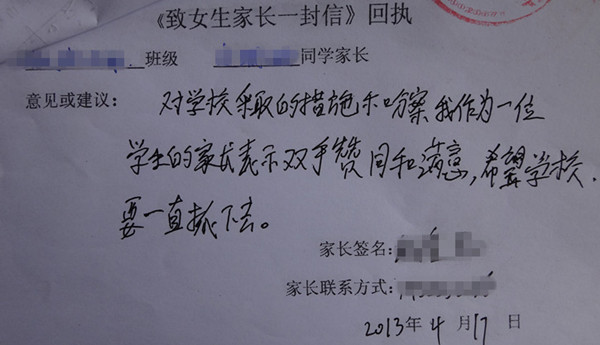 《致女生家长一封信》回执
班级 同学家长
意见或建议： 对学校采取的措施和答案我作为一位
学生的家长表示双手赞同和满意，希望学校
要一直抓下去。
家长签名：
家长联系方式：
2013年 4 月 17 日